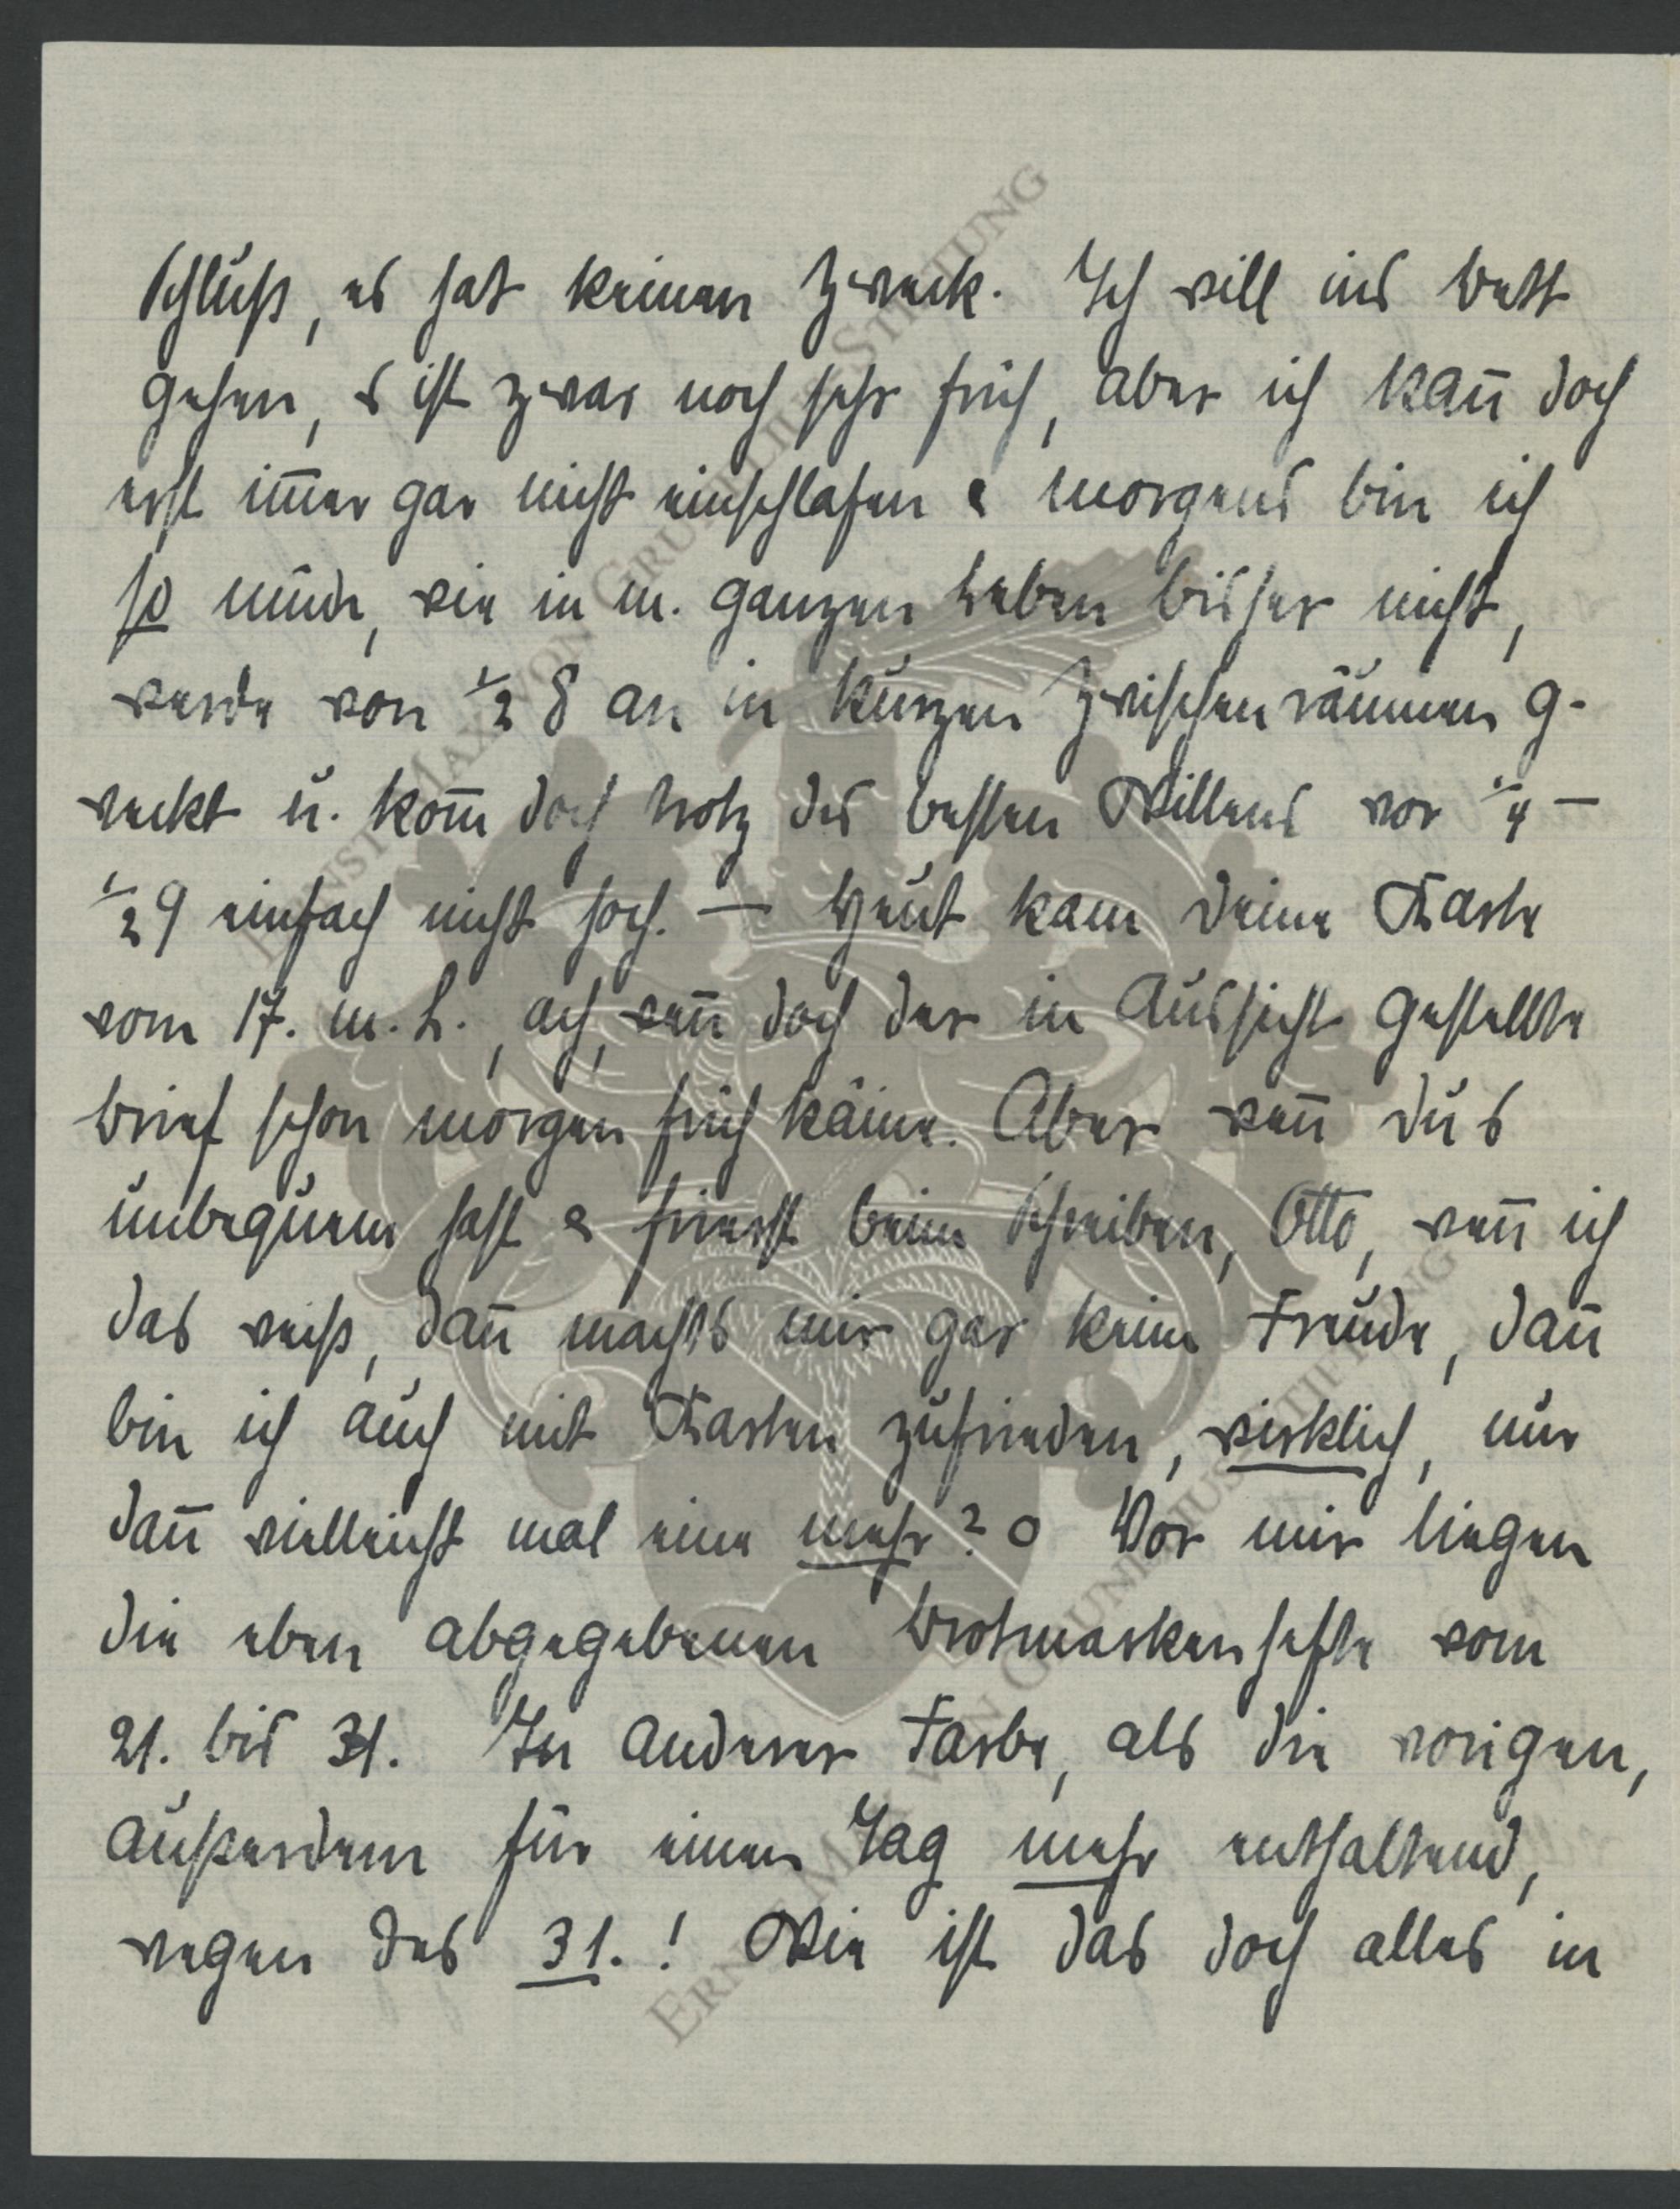 Schluß, es hat keinen Zweck. Ich will ins Bett
gehen, s ist zwar noch sehr früh, aber ich kan̄ doch
erst im̄er gar nicht einschlafen & morgens bin ich
so müde, wie in m. ganzen Leben bisher nicht,
werde von ½ 8 an in kurzen Zwischenräumen ge-
weckt u. kom̄ doch trotz des besten Willens vor ¼ –
½ 9 einfach nicht hoch. — Heut kam Deine Karte
vom 17. m. L., ach, wen̄ doch der in Aussicht gestellte
Brief schon morgen früh käme. Aber wen̄ Du's
unbequem hast & frierst beim Schreiben, Otto, wen̄ ich
das weiß, dan̄ machts mir gar keine Freude, dan̄
bin ich auch mit Karten zufrieden, wirklich, nur
dan̄ vielleicht mal eine mehr? O Vor mir liegen
die eben abgegebenen Brotmarkenhefte vom
21. bis 31. In anderer Farbe, als die vorigen,
außerdem für einen Tag mehr enthaltend,
wegen des 31.! Wie ist das doch alles in
ERNST MAX VON GRUNELIUS STIFTUNG
ERNST MAX VON GRUNELIUS STIFTUNG